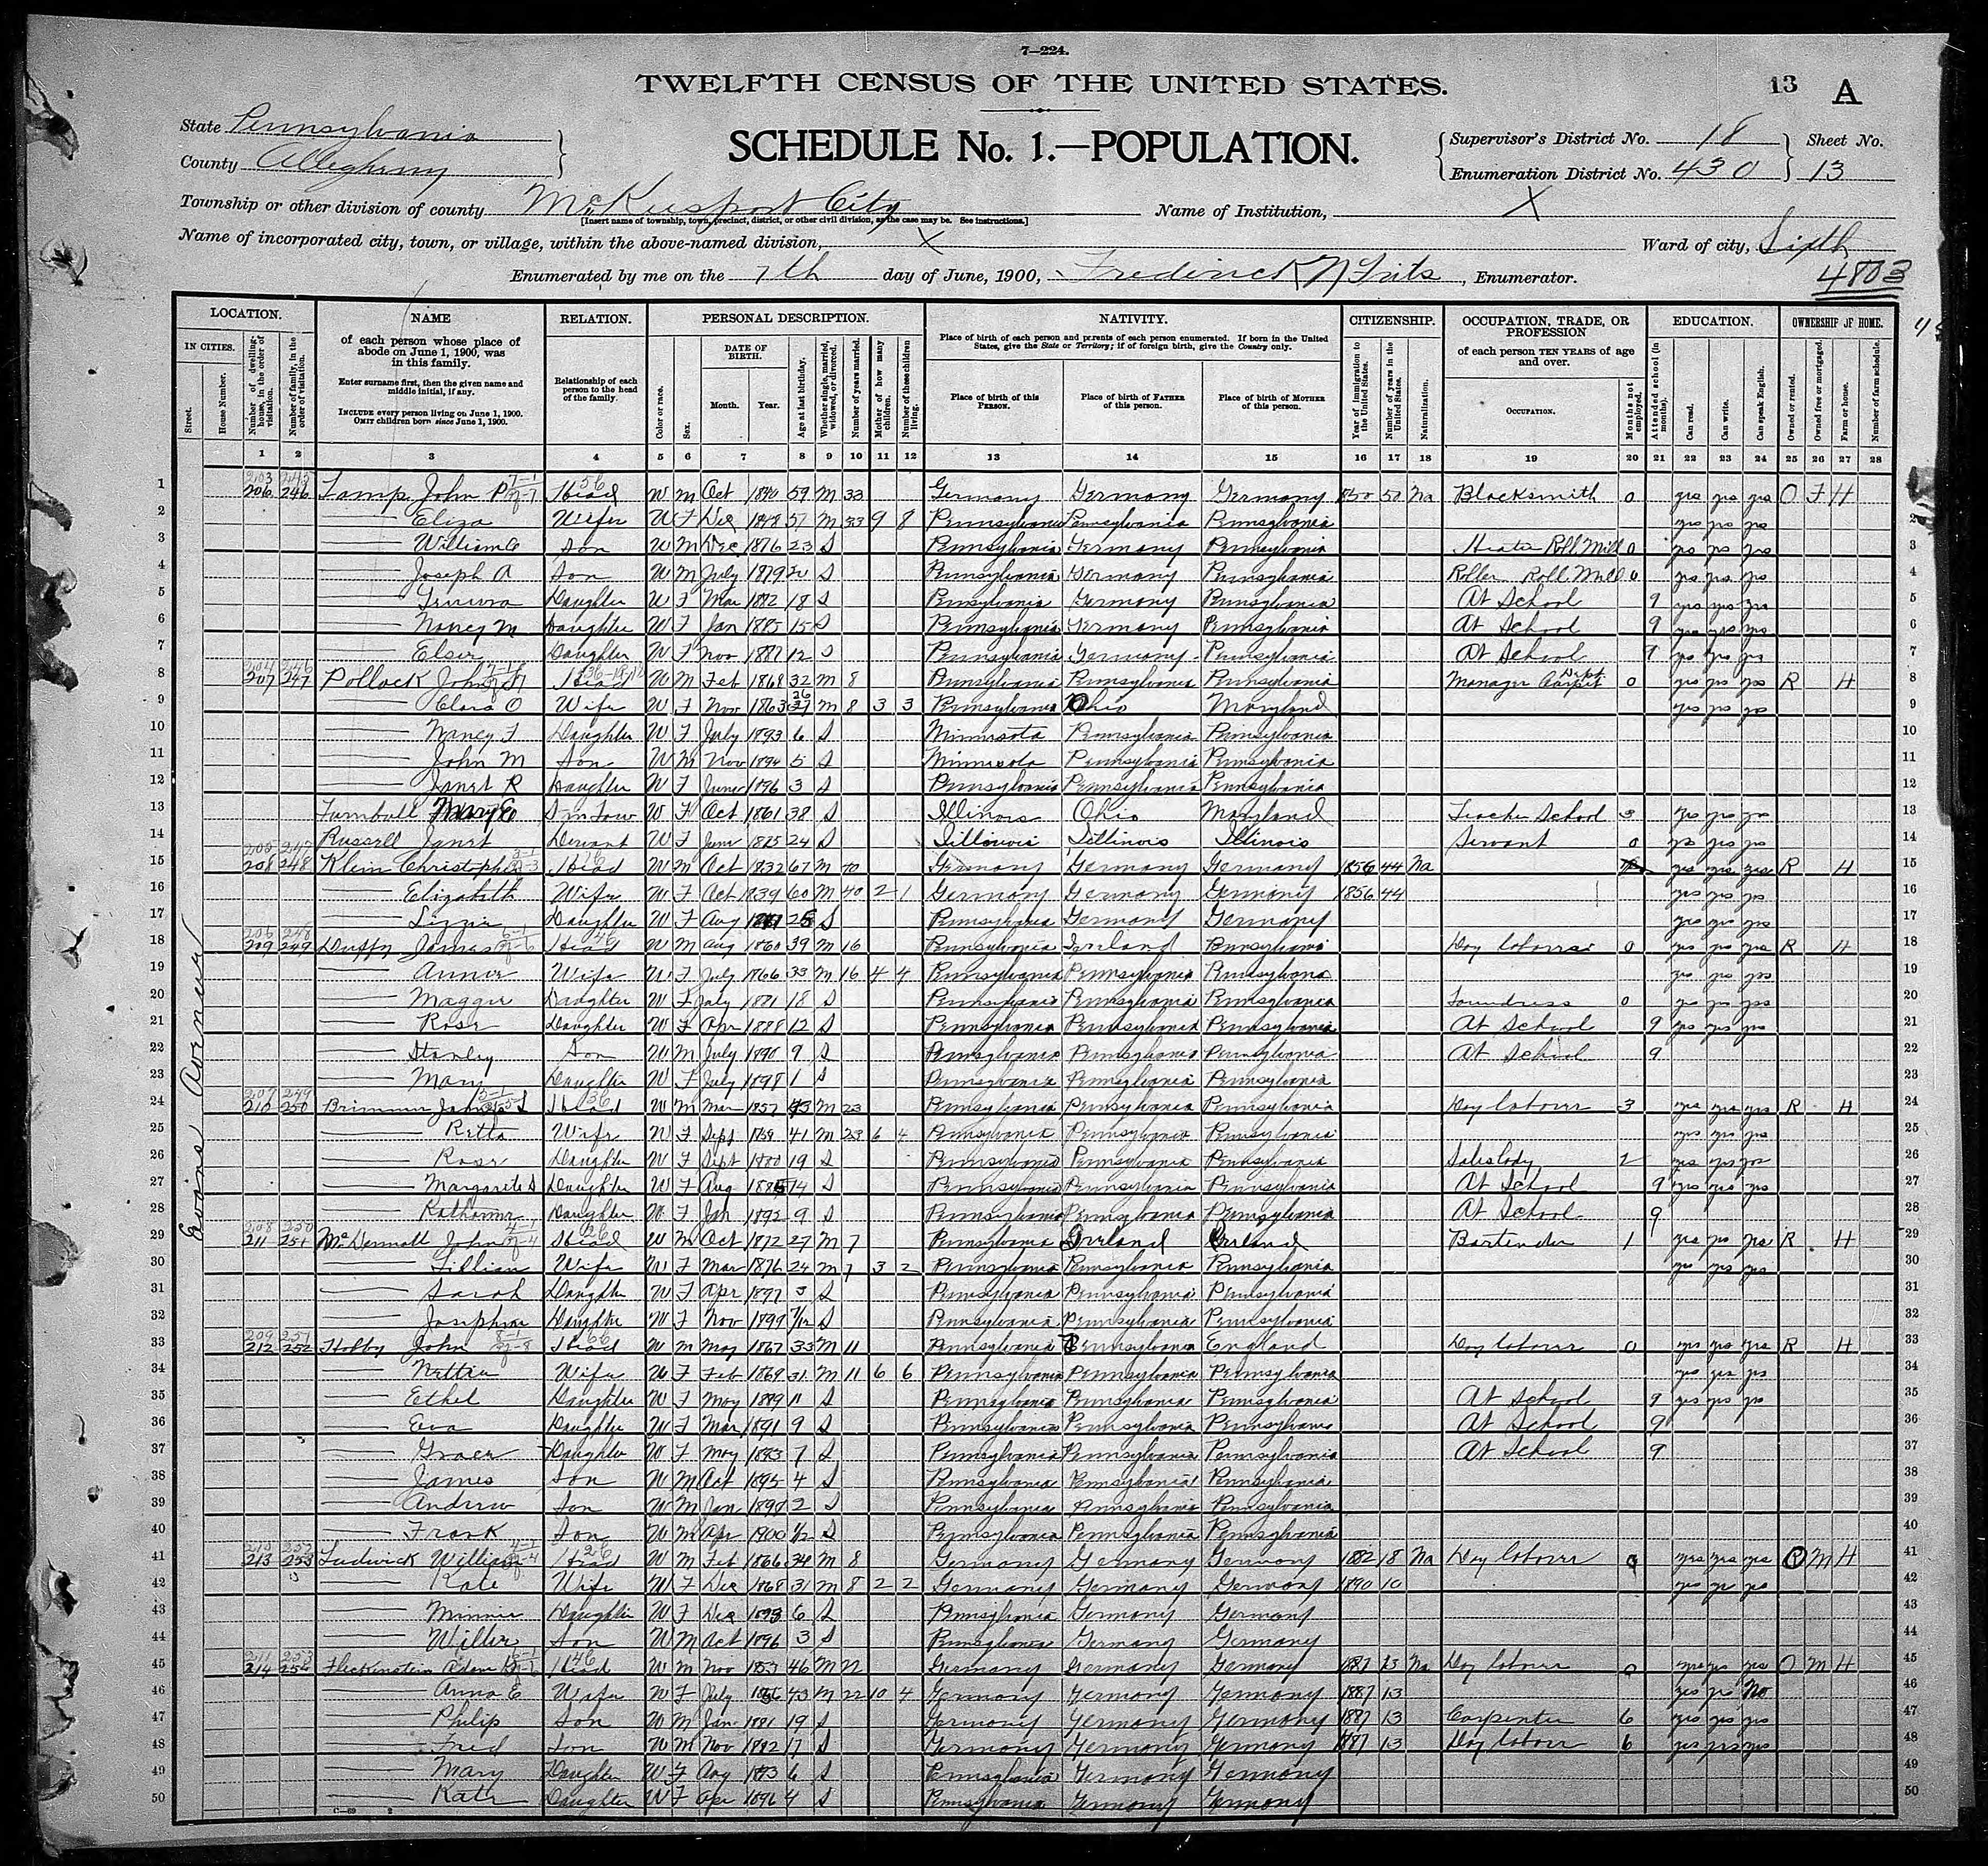 7—224.
TWELFTH CENSUS OF THE UNITED STATES.
13 A
State Pennsylvania
County Allegheny
SCHEDULE No. 1.—POPULATION.
Supervisor's District No. 18
Enumeration District No. 430
Sheet No.
13
Township or other division of county McKeesport City
[Insert name of township, town, precinct, district, or other civil division, as the case may be. See instructions.]
Name of Institution, X
Name of incorporated city, town, or village, within the above-named division, X
Ward of city, Sixth
Enumerated by me on the 7th day of June, 1900, Frederick N Frits, Enumerator.
4803
LOCATION. NAME RELATION. PERSONAL DESCRIPTION. NATIVITY. CITIZENSHIP. OCCUPATION, TRADE, OR PROFESSION EDUCATION. OWNERSHIP OF HOME.
IN CITIES.
Street.
House Number.
Number of dwelling-house, in the order of visitation.
Number of family, in the order of visitation.
of each person whose place of abode on June 1, 1900, was in this family.
Enter surname first, then the given name and middle initial, if any.
INCLUDE every person living on June 1, 1900. OMIT children born since June 1, 1900.
Relationship of each person to the head of the family.
Color or race.
Sex.
DATE OF BIRTH.
Month. Year.
Age at last birthday.
Whether single, married, widowed, or divorced.
Number of years married.
Mother of how many children.
Number of these children living.
Place of birth of each person and parents of each person enumerated. If born in the United States, give the State or Territory; if of foreign birth, give the Country only.
Place of birth of this PERSON.
Place of birth of FATHER of this person.
Place of birth of MOTHER of this person.
Year of immigration to the United States.
Number of years in the United States.
Naturalization.
of each person TEN YEARS of age and over.
OCCUPATION.
Months not employed.
Attended school (in months).
Can read.
Can write.
Can speak English.
Owned or rented.
Owned free or mortgaged.
Farm or house.
Number of farm schedule.
1 2 3 4 5 6 7 8 9 10 11 12 13 14 15 16 17 18 19 20 21 22 23 24 25 26 27 28
Evans Avenue
1 206 246 John P Head W M Oct 1840 59 M 33 Germany Germany Germany 1850 50 Na Blacksmith 0 yes yes yes O F H
2 Eliza Wife W F Dec 1848 51 M 33 9 8 Pennsylvania Pennsylvania Pennsylvania yes yes yes
3 William Son W M Dec 1876 23 S Pennsylvania Germany Pennsylvania Heater Roll Mill 0 yes yes yes
4 Joseph A Son W M July 1879 20 S Pennsylvania Germany Pennsylvania Roller Roll Mill 0 yes yes yes
5 Daughter W F Mar 1882 18 S Pennsylvania Germany Pennsylvania At School 9 yes yes yes
6 Nancy M Daughter W F Jan 1885 15 S Pennsylvania Germany Pennsylvania At School 9 yes yes yes
7 Elsie Daughter W F Nov 1887 12 S Pennsylvania Germany Pennsylvania At School 9 yes yes yes
8 207 247 Pollock John Head W M Feb 1868 32 M 8 Pennsylvania Pennsylvania Pennsylvania Manager Carpet Dept 0 yes yes yes R H
9 Clara O Wife W F Nov 1863 36 M 8 3 3 Pennsylvania Ohio Maryland yes yes yes
10 Nancy F Daughter W F July 1893 6 S Minnesota Pennsylvania Pennsylvania
11 John M Son W M Nov 1894 5 S Minnesota Pennsylvania Pennsylvania
12 Janet R Daughter W F June 1896 3 S Pennsylvania Pennsylvania Pennsylvania
13 Turnbull Mary E W F Oct 1861 38 S Illinois Ohio Maryland Teacher School 3 yes yes yes
14 Russell Janet Servant W F June 24 S Illinois Illinois Illinois Servant 0 yes yes yes
15 208 248 Klein Christopher Head W M Oct 1832 67 M 40 Germany Germany Germany 1856 44 Na yes yes yes R H
16 Elizabeth Wife W F Oct 1839 60 M 40 2 1 Germany Germany Germany 1856 44 yes yes yes
17 Lizzie Daughter W F Aug 25 S Pennsylvania Germany Germany yes yes yes
18 209 249 Duffy James Head W M Aug 1860 39 M 16 Pennsylvania Ireland Pennsylvania Day laborer 0 yes yes yes R H
19 Annie Wife W F July 1866 33 M 16 4 4 Pennsylvania Pennsylvania Pennsylvania yes yes yes
20 Maggie Daughter W F July 1881 18 S Pennsylvania Pennsylvania Pennsylvania Laundress 0 yes yes yes
21 Rose Daughter W F Apr 1888 12 S Pennsylvania Pennsylvania Pennsylvania At School 9 yes yes yes
22 Stanley Son W M July 1890 9 S Pennsylvania Pennsylvania Pennsylvania At School 9
23 Mary Daughter W F July 1898 1 S Pennsylvania Pennsylvania Pennsylvania
24 210 250 Brimmer James S Head W M Mar 1857 43 M 23 Pennsylvania Pennsylvania Pennsylvania Day laborer 3 yes yes yes R H
25 Retta Wife W F Sept 41 M 23 6 4 Pennsylvania Pennsylvania Pennsylvania yes yes yes
26 Rose Daughter W F Sept 19 S Pennsylvania Pennsylvania Pennsylvania Saleslady 2 yes yes yes
27 Margarete S Daughter W F Aug 1885 14 S Pennsylvania Pennsylvania Pennsylvania At School 9 yes yes yes
28 Katharine Daughter W F Jan 1892 9 S Pennsylvania Pennsylvania Pennsylvania At School 9
29 211 251 McDermott John Head W M Oct 1872 27 M 7 Pennsylvania Ireland Ireland Bartender 1 yes yes yes R H
30 Lillian Wife W F Mar 1876 24 M 7 3 2 Pennsylvania Pennsylvania Pennsylvania yes yes yes
31 Sarah Daughter W F Apr 1897 3 S Pennsylvania Pennsylvania Pennsylvania
32 Josephine Daughter W F Nov 1899 7/12 S Pennsylvania Pennsylvania Pennsylvania
33 212 252 Holby John Head W M May 1867 33 M 11 Pennsylvania Pennsylvania England Day laborer 0 yes yes yes R H
34 Nettie Wife W F Feb 1869 31 M 11 6 6 Pennsylvania Pennsylvania Pennsylvania yes yes yes
35 Ethel Daughter W F May 1889 11 S Pennsylvania Pennsylvania Pennsylvania At School 9 yes yes yes
36 Eva Daughter W F Mar 1891 9 S Pennsylvania Pennsylvania Pennsylvania At School 9
37 Grace Daughter W F May 1893 7 S Pennsylvania Pennsylvania Pennsylvania At School 9
38 James Son W M Oct 1895 4 S Pennsylvania Pennsylvania Pennsylvania
39 Andrew Son W M Jan 1898 2 S Pennsylvania Pennsylvania Pennsylvania
40 Frank Son W M Apr 1900 1/12 S Pennsylvania Pennsylvania Pennsylvania
41 213 253 Ludwick William Head W M Feb 1866 34 M 8 Germany Germany Germany 1882 18 Na Day laborer yes yes yes O M H
42 Kate Wife W F Dec 1868 31 M 8 2 2 Germany Germany Germany 1890 10 yes yes yes
43 Minnie Daughter W F Dec 1893 6 S Pennsylvania Germany Germany
44 Willie Son W M Oct 1896 3 S Pennsylvania Germany Germany
45 214 254 Fleckinstein Adam Head W M Nov 1853 46 M 22 Germany Germany Germany 1887 13 Na Day laborer 0 yes yes yes O M H
46 Anna E Wife W F July 1856 43 M 22 10 4 Germany Germany Germany 1887 13 yes yes No
47 Philip Son W M Jan 1881 19 S Germany Germany Germany 1887 13 Carpenter 6 yes yes yes
48 Fred Son W M Nov 1882 17 S Germany Germany Germany 1887 13 Day laborer 6 yes yes yes
49 Mary Daughter W F Aug 1893 6 S Pennsylvania Germany Germany
50 Kate Daughter W F Apr 1896 4 S Pennsylvania Germany Germany
C—69 2